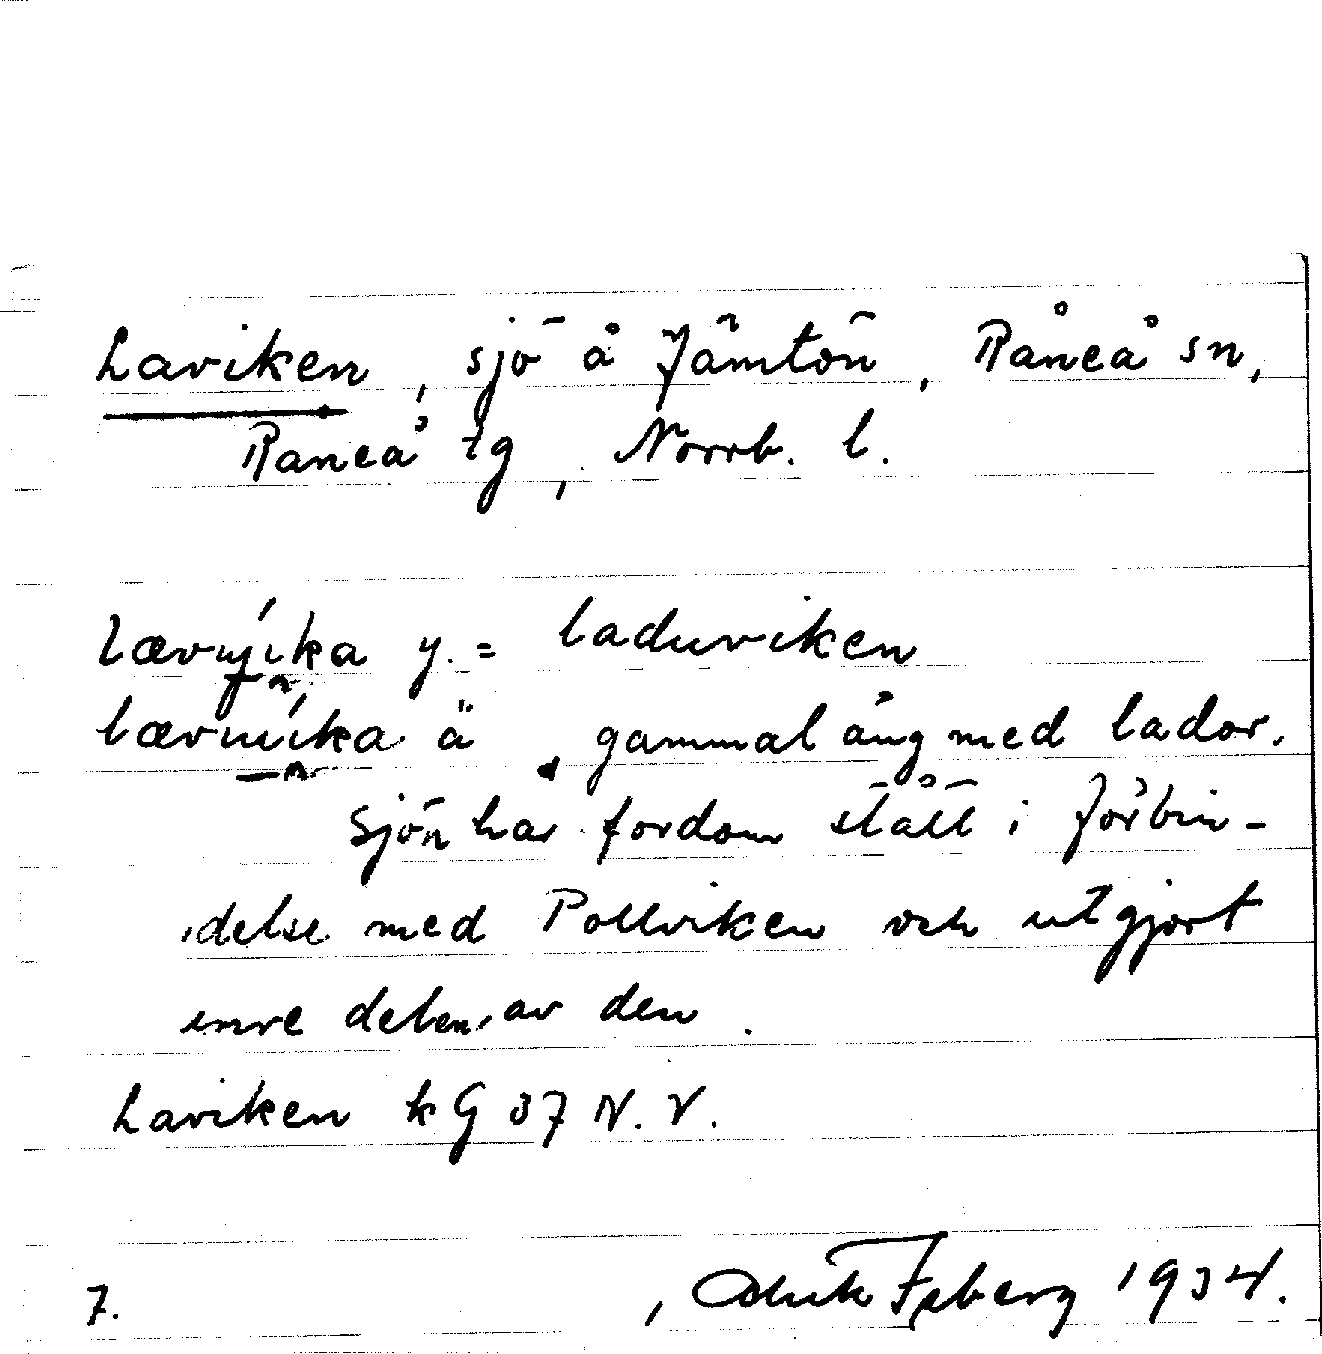 Laviken, sjö å Jämtön, Råneå sn,
Råneå tg, Norrb. l.
y. = laduviken
ä gammal äng med lador.
Sjön har fordom stått i förbin-
delse med Pollviken och utgjort
inre delen av den.
Laviken k G 37 N. V.
7. 1934.